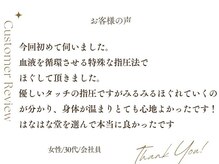 お客様の声
Customer Review
今回初めて伺いました。
血液を循環させる特殊な指圧法で
ほぐして頂きました。
優しいタッチの指圧ですがみるみるほぐれていくの
が分かり、身体が温まりとても心地よかったです！
はなはな堂を選んで本当に良かったです
女性/30代/会社員
Thank You!